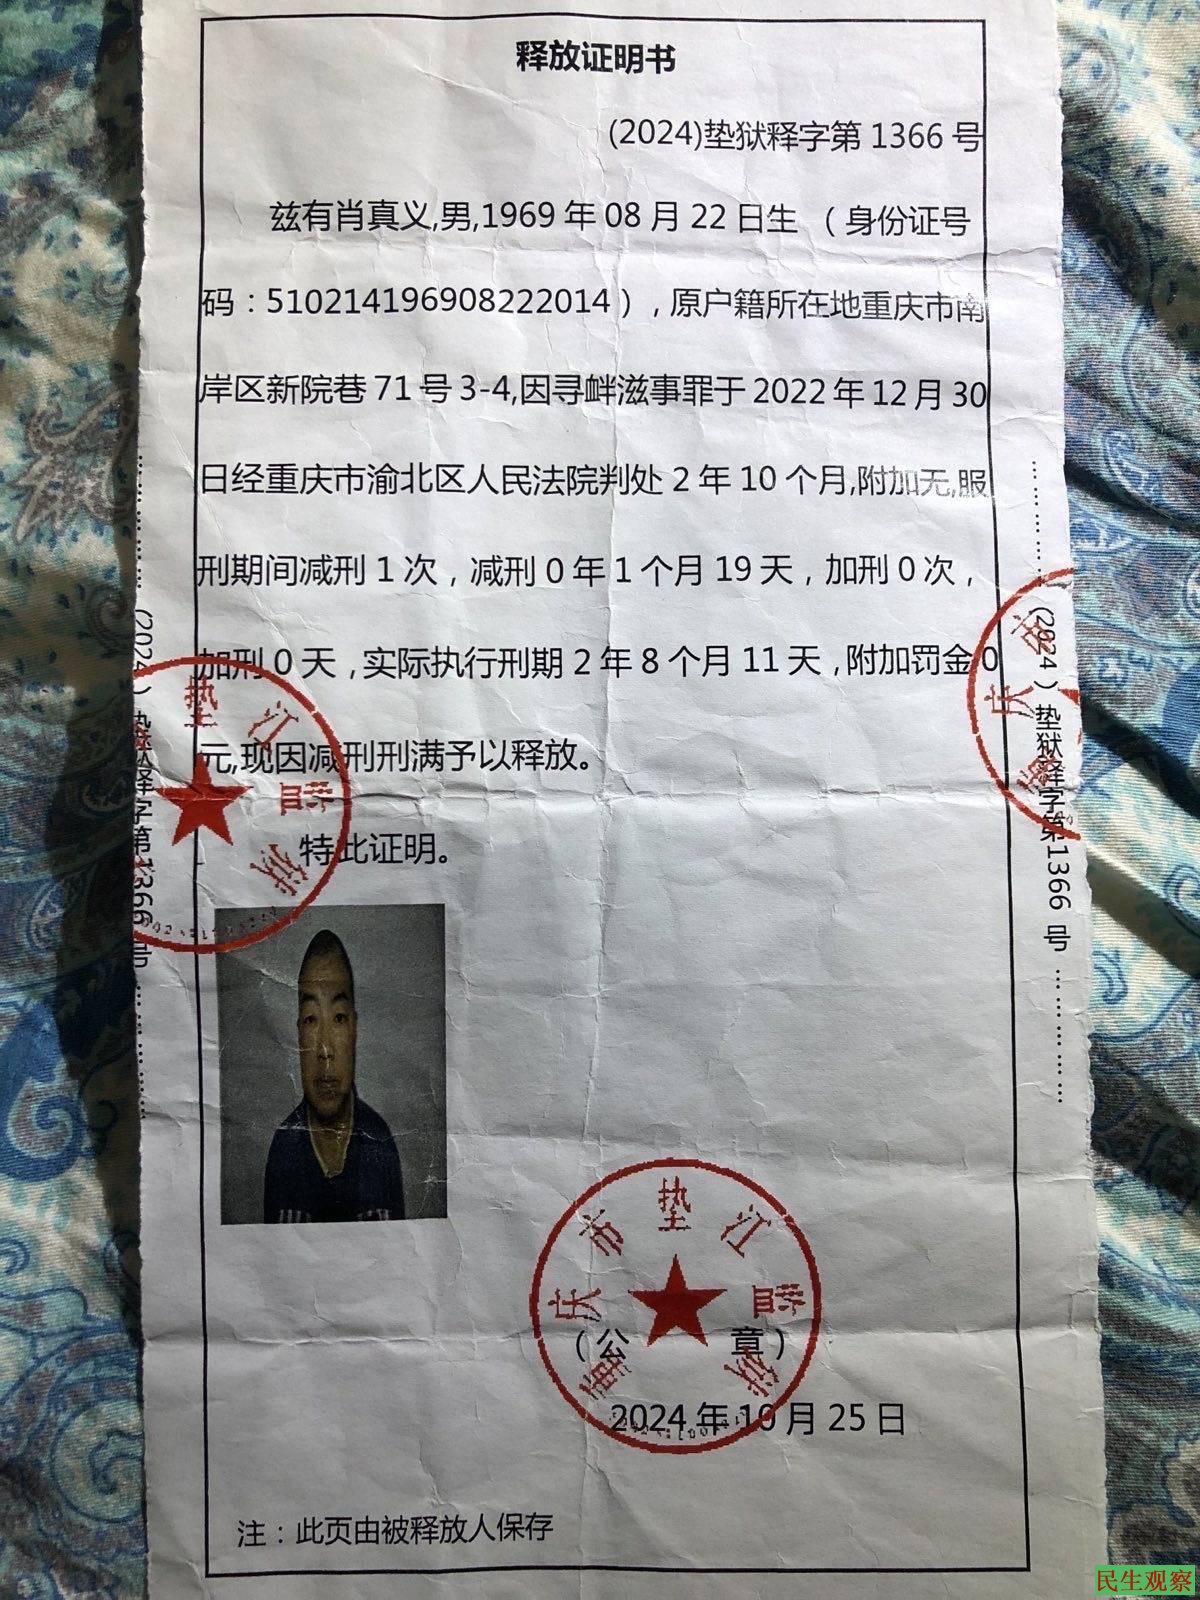 释放证明书
(2024)垫狱释字第 1366 号
兹有肖真义,男,1969 年 08 月 22 日生 （身份证号
码：510214196908222014）,原户籍所在地重庆市南
岸区新院巷 71 号 3-4,因寻衅滋事罪于 2022 年 12 月 30
日经重庆市渝北区人民法院判处 2 年 10 个月,附加无,服
刑期间减刑 1 次，减刑 0 年 1 个月 19 天，加刑 0 次，
加刑 0 天，实际执行刑期 2 年 8 个月 11 天，附加罚金 0
元,现因减刑刑满予以释放。
特此证明。
(2024）垫狱释字第1366 号
垫江监狱
(2024）垫狱释字第1366 号
重庆市
重庆市垫江监狱
（公 章）
2024 年 10 月 25 日
注：此页由被释放人保存
民生观察